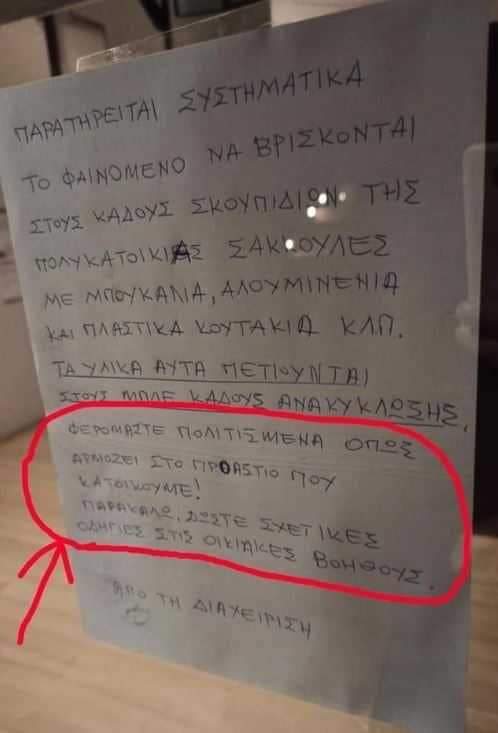 ΠΑΡΑΤΗΡΕΙΤΑΙ ΣΥΣΤΗΜΑΤΙΚΑ
ΤΟ ΦΑΙΝΟΜΕΝΟ ΝΑ ΒΡΙΣΚΟΝΤΑΙ
ΣΤΟΥΣ ΚΑΔΟΥΣ ΣΚΟΥΠΙΔΙΩΝ ΤΗΣ
ΠΟΛΥΚΑΤΟΙΚΙΑΣ ΣΑΚΚΟΥΛΕΣ
ΜΕ ΜΠΟΥΚΑΛΙΑ, ΑΛΟΥΜΙΝΕΝΙΑ
ΚΑΙ ΠΛΑΣΤΙΚΑ ΚΟΥΤΑΚΙΑ ΚΛΠ.
ΤΑ ΥΛΙΚΑ ΑΥΤΑ ΠΕΤΙΟΥΝΤΑΙ
ΣΤΟΥΣ ΜΠΛΕ ΚΑΔΟΥΣ ΑΝΑΚΥΚΛΩΣΗΣ.
ΦΕΡΟΜΑΣΤΕ ΠΟΛΙΤΙΣΜΕΝΑ ΟΠΩΣ
ΑΡΜΟΖΕΙ ΣΤΟ ΠΡΟΑΣΤΙΟ ΠΟΥ
ΚΑΤΟΙΚΟΥΜΕ!
ΠΑΡΑΚΑΛΩ, ΔΩΣΤΕ ΣΧΕΤΙΚΕΣ
ΟΔΗΓΙΕΣ ΣΤΙΣ ΟΙΚΙΑΚΕΣ ΒΟΗΘΟΥΣ.
ΑΠΟ ΤΗ ΔΙΑΧΕΙΡΙΣΗ